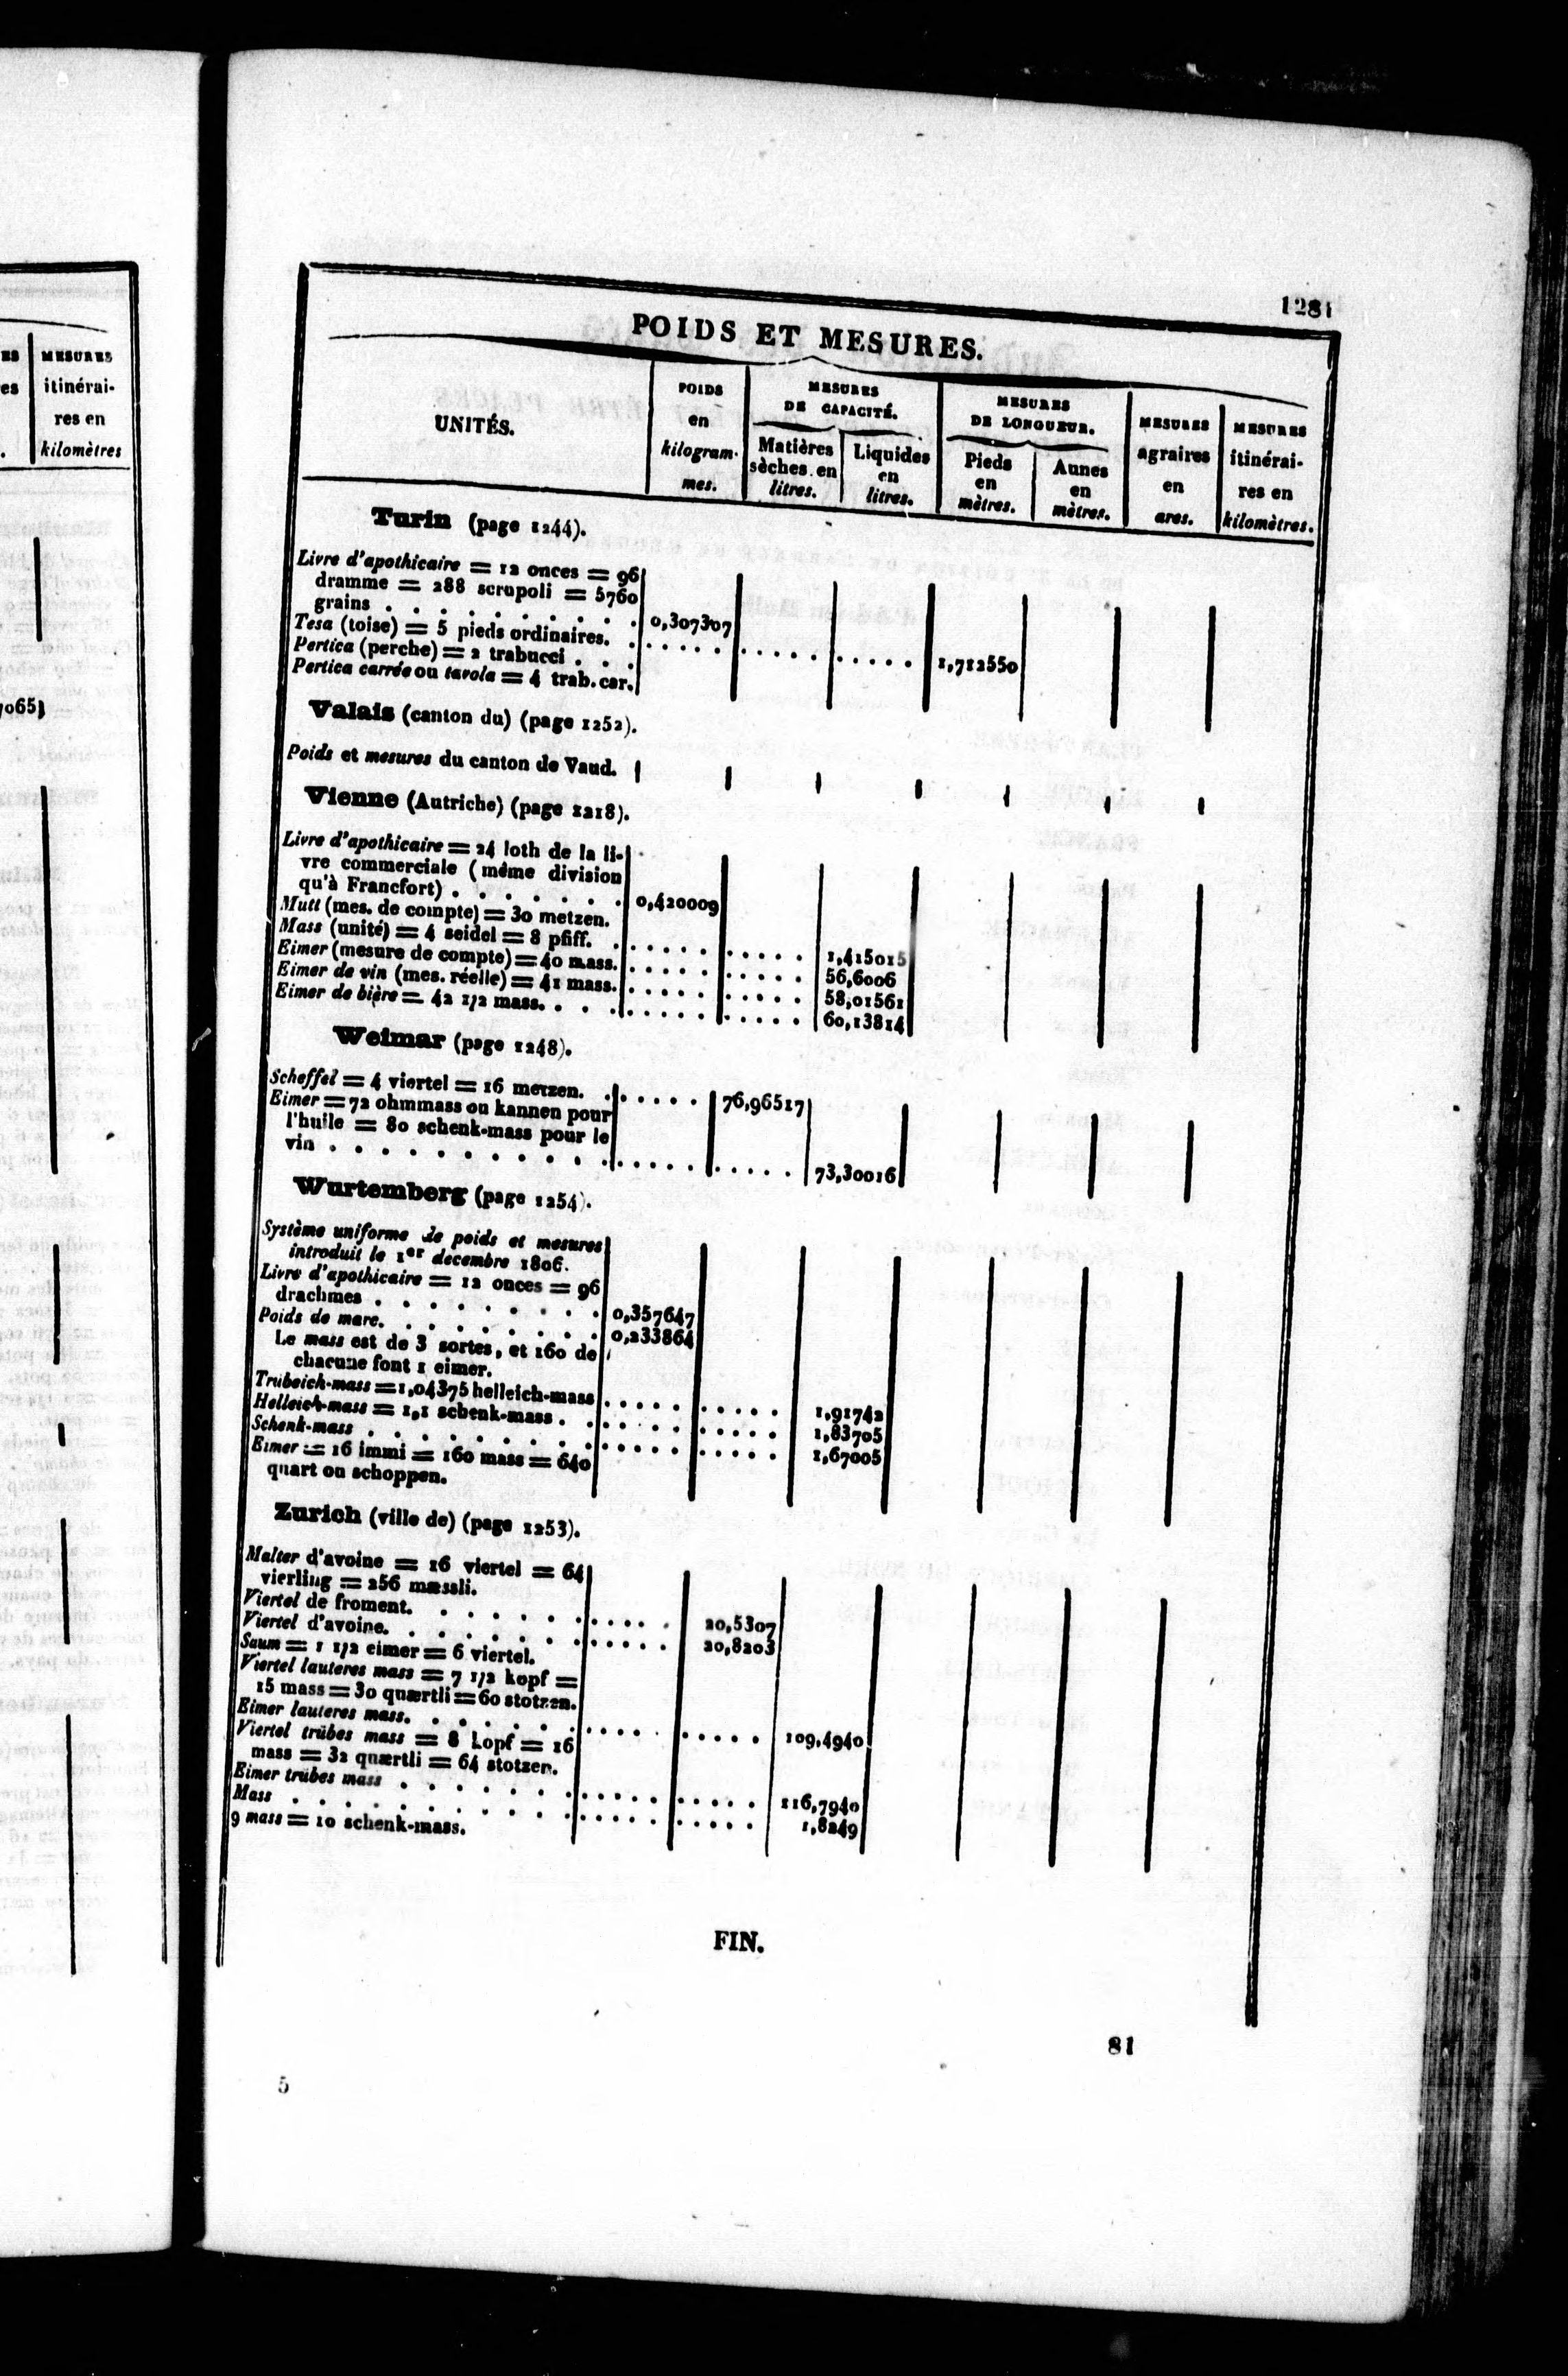 ES
es
.
MESURES
itinérai-
res en
kilomètres
7065
1281
POIDS ET MESURES.
UNITÉS.
POIDS
en
kilogram-
mes.
MESURES
DE CAPACITÉ.
Matières
sèches en
litres.
Liquides
en
litres.
MESURES
DE LONGUEUR.
Pieds
en
mètres.
Aunes
en
mètres.
MESURES
agraires
en
ares.
MESURES
itinérai-
res en
kilomètres.
Turin (page 1244).
Livre d'apothicaire = 12 onces = 96
dramme = 288 scrupoli = 5760
grains . . . . . . . . . . 0,307307
Tesa (toise) = 5 pieds ordinaires. . . . . . . . . . . . . . . . . 1,712550
Pertica (perche) = 2 trabucci . . .
Pertica carrée ou tavola = 4 trab. car.
Valais (canton du) (page 1252).
Poids et mesures du canton de Vaud.
Vienne (Autriche) (page 1218).
Livre d'apothicaire = 24 loth de la li-
vre commerciale (même division
qu'à Francfort) . . . . . . . 0,420009
Mutt (mes. de compte) = 30 metzen.
Mass (unité) = 4 seidel = 8 pfiff. . . . . . . . . . . . . 1,415015
Eimer (mesure de compte) = 40 mass. . . . . . . . . . . . 56,6006
Eimer de vin (mes. réelle) = 41 mass. . . . . . . . . . . . 58,01561
Eimer de bière = 42 1/2 mass. . . . . . . . . . . . . . 60,13814
Weimar (page 1248).
Scheffel = 4 viertel = 16 metzen. . . . . . . 76,96517
Eimer = 72 ohmmass ou kannen pour
l'huile = 80 schenk-mass pour le
vin . . . . . . . . . . . . . . . . . . . . . 73,30016
Wurtemberg (page 1254).
Système uniforme de poids et mesures
introduit le 1er decembre 1806.
Livre d'apothicaire = 12 onces = 96
drachmes . . . . . . . . . 0,357647
Poids de marc. . . . . . . . . 0,233864
Le mass est de 3 sortes, et 160 de
chacune font 1 eimer.
Trubeich-mass = 1,04375 helleich-mass . . . . . . . . . . 1,91742
Helleich-mass = 1,1 schenk-mass . . . . . . . . . . . . 1,83705
Schenk-mass . . . . . . . . . . . . . . . . . . . . 1,67005
Eimer = 16 immi = 160 mass = 640
quart ou schoppen.
Zurich (ville de) (page 1253).
Malter d'avoine = 16 viertel = 64
vierling = 256 mæssli.
Viertel de froment. . . . . . . . . . . . 20,5307
Viertel d'avoine. . . . . . . . . . . . . 20,8203
Saum = 1 1/2 eimer = 6 viertel.
Viertel lauteres mass = 7 1/2 kopf =
15 mass = 30 quærtli = 60 stotzen.
Eimer lauteres mass. . . . . . . . . . . . . . . . . 109,4940
Viertel trübes mass = 8 kopf = 16
mass = 32 quærtli = 64 stotzen.
Eimer trübes mass . . . . . . . . . . . . . . . . . 116,7940
Mass . . . . . . . . . . . . . . . . . . . . . . 1,8249
9 mass = 10 schenk-mass.
FIN.
81
5